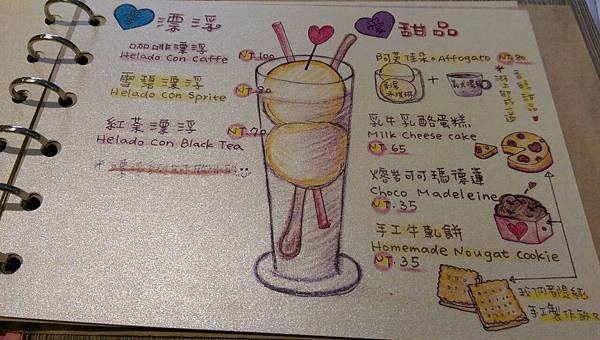 漂浮
咖啡漂浮
Helado Con Caffe NT.100
雪碧漂浮
Helado Con Sprite NT.80
紅茶漂浮
Helado Con Black Tea NT.70
甜品
阿芙佳朵。Affogato NT.80
乳牛乳酪蛋糕
Milk cheese cake
NT.65
熔岩可可瑪德蓮
Choco Madeleine
NT.35
手工牛軋餅
Homemade Nougat Cookie
NT.35
我們都是純
手工製作